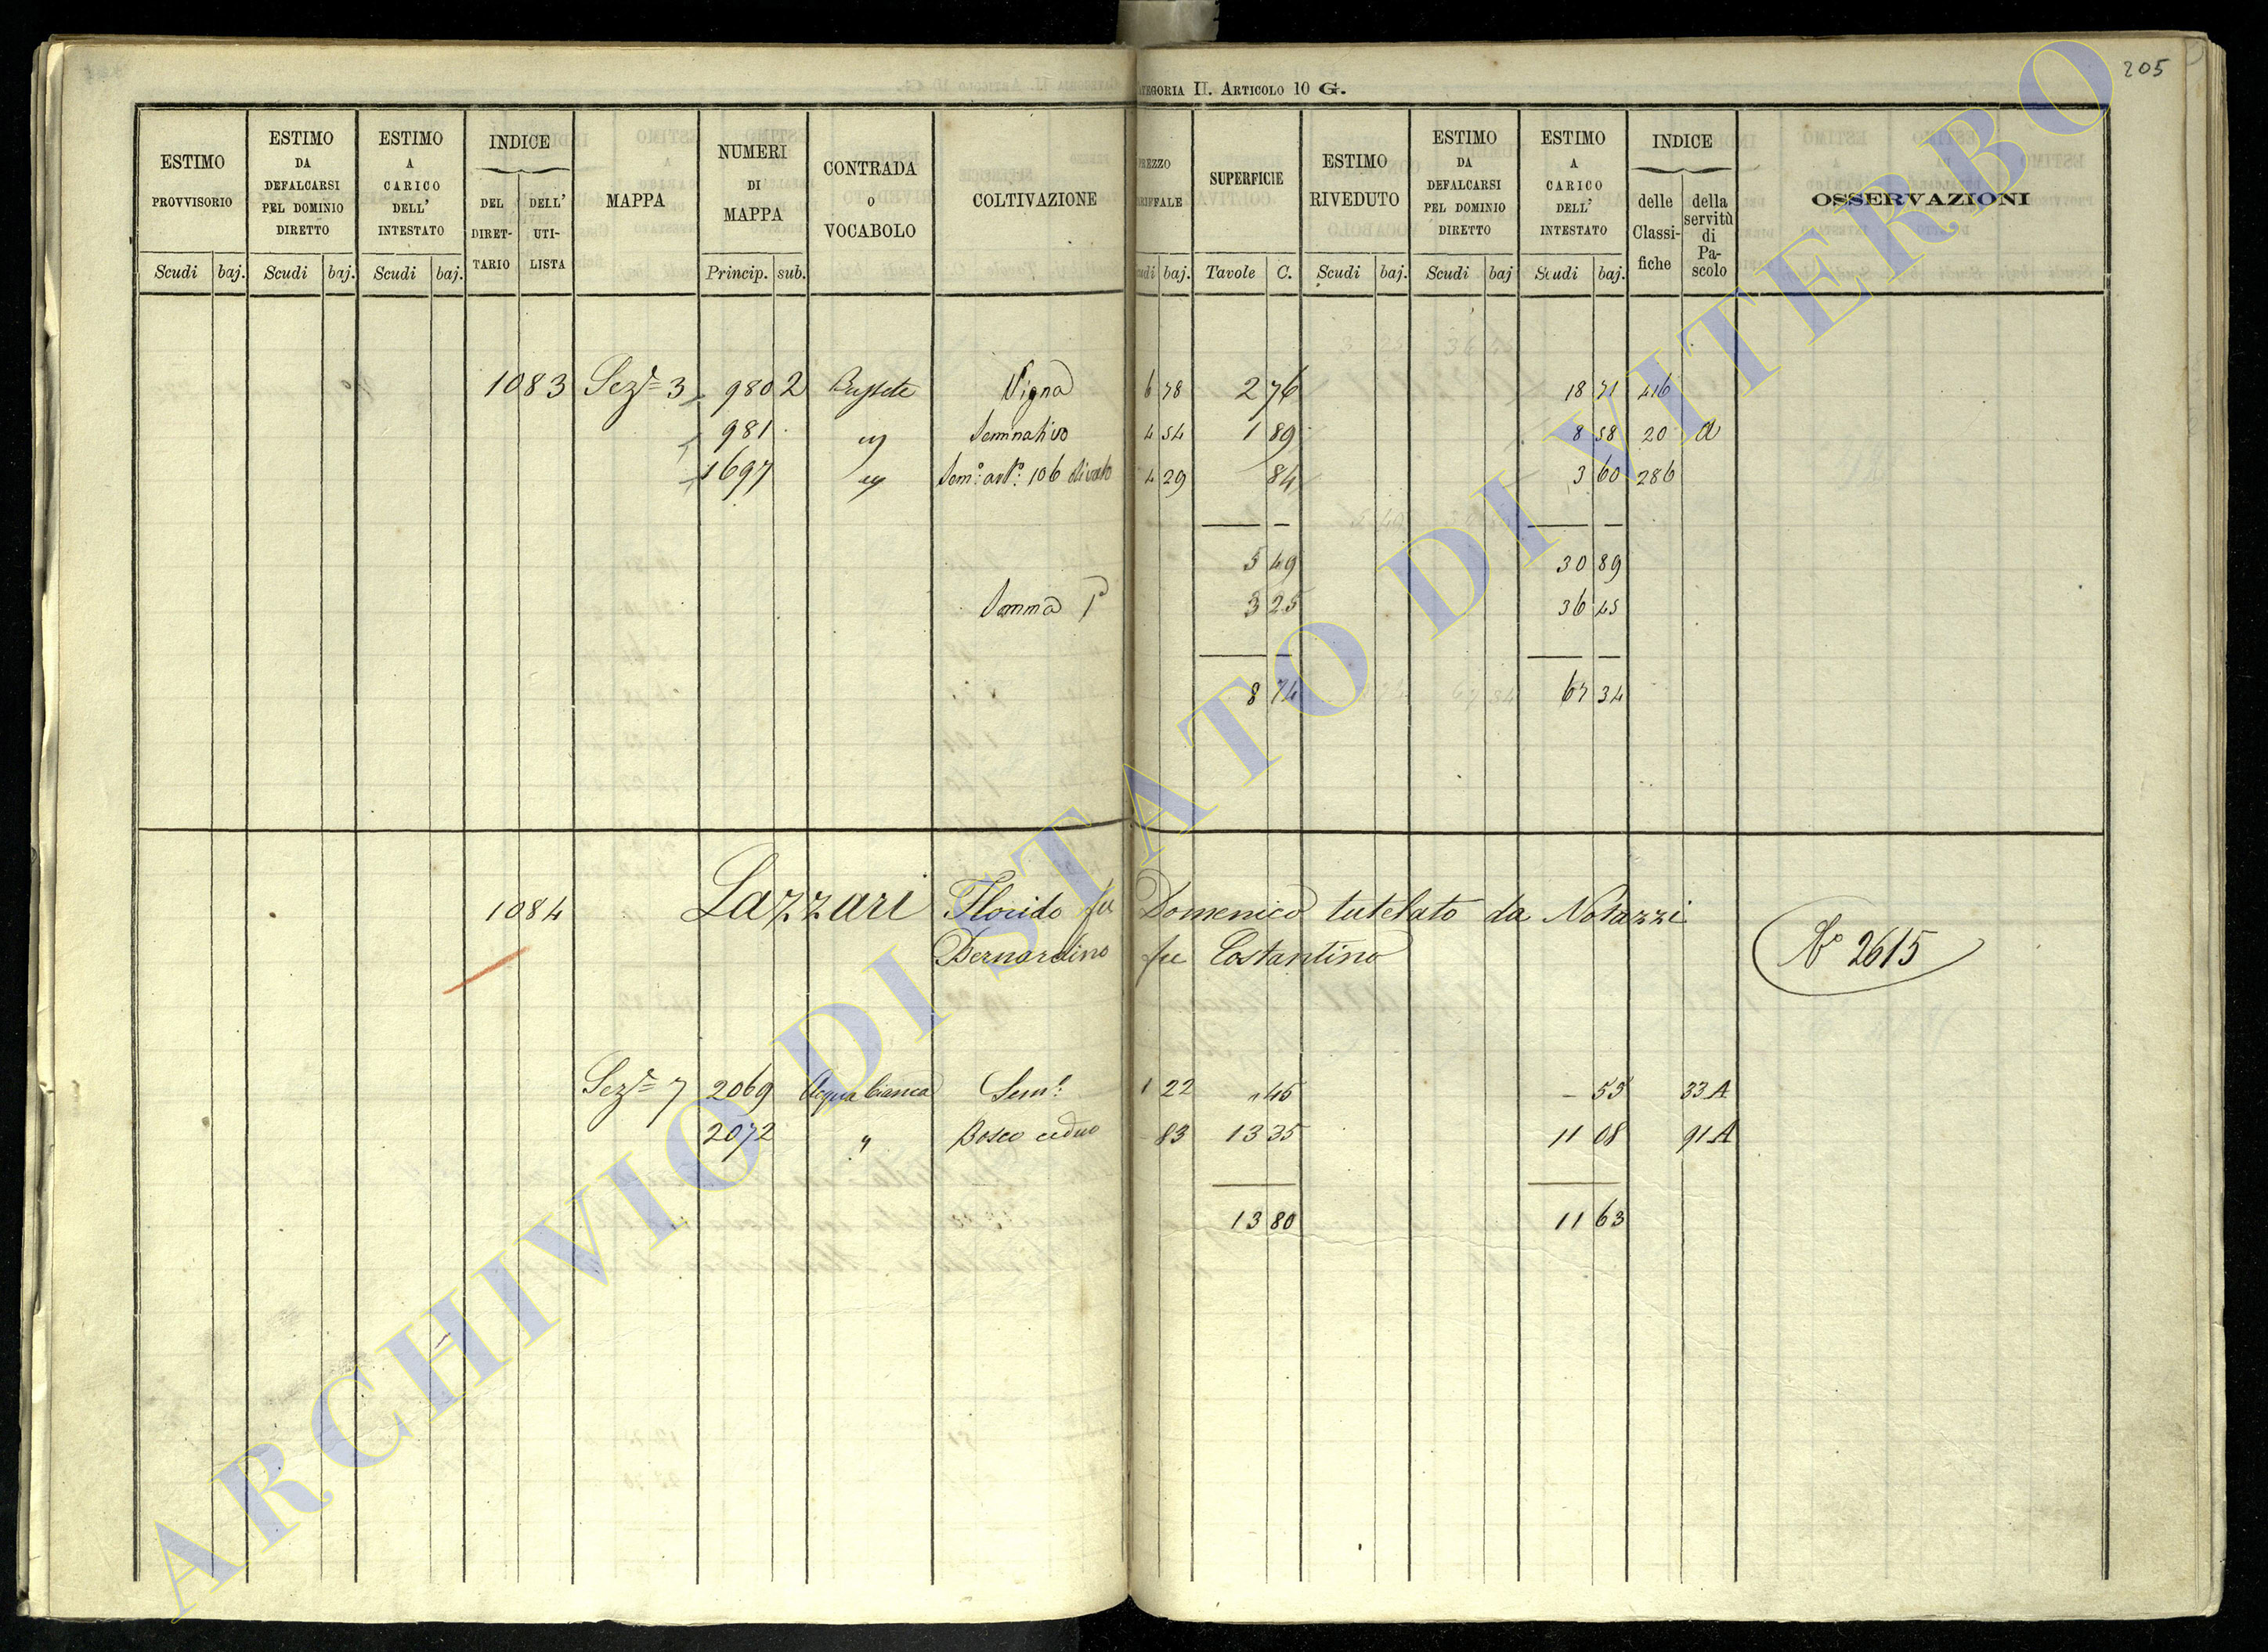 205
CATEGORIA II. ARTICOLO 10 G.
ESTIMO PROVVISORIO
ESTIMO DA DEFALCARSI PEL DOMINIO DIRETTO
ESTIMO A CARICO DELL' INTESTATO
INDICE
DEL DIRETTARIO
DELL' UTILISTA
MAPPA
NUMERI DI MAPPA
CONTRADA O VOCABOLO
COLTIVAZIONE
PREZZO TARIFFALE
SUPERFICIE
ESTIMO RIVEDUTO
ESTIMO DA DEFALCARSI PEL DOMINIO DIRETTO
ESTIMO A CARICO DELL' INTESTATO
INDICE
delle Classifiche
della servitù di Pascolo
OSSERVAZIONI
Scudi baj. Scudi baj. Scudi baj. Princip. sub. Scudi baj. Tavole C. Scudi baj. Scudi baj Scudi baj.
1083 Sez.e 3 980 2 Vigna 6 78 2 76 18 71 416
981 Seminativo 4 54 1 89 8 58 20 a
1697 Sem.o arb.o 106 olivato 4 29 84 3 60 286
5 49 30 89
Somma 3 25 36 45
8 74 67 34
1084 Lazzari Florido fu Domenico tutelato da Notazzi
Bernardino fu Costantino
N.o 2615
Sez.e 7 2069 Acqua bianca Sem.o 1 22 " 45 – 55 33 A
2072 " Bosco ceduo – 83 13 35 11 08 91 A
13 80 11 63
ARCHIVIO DI STATO DI VITERBO